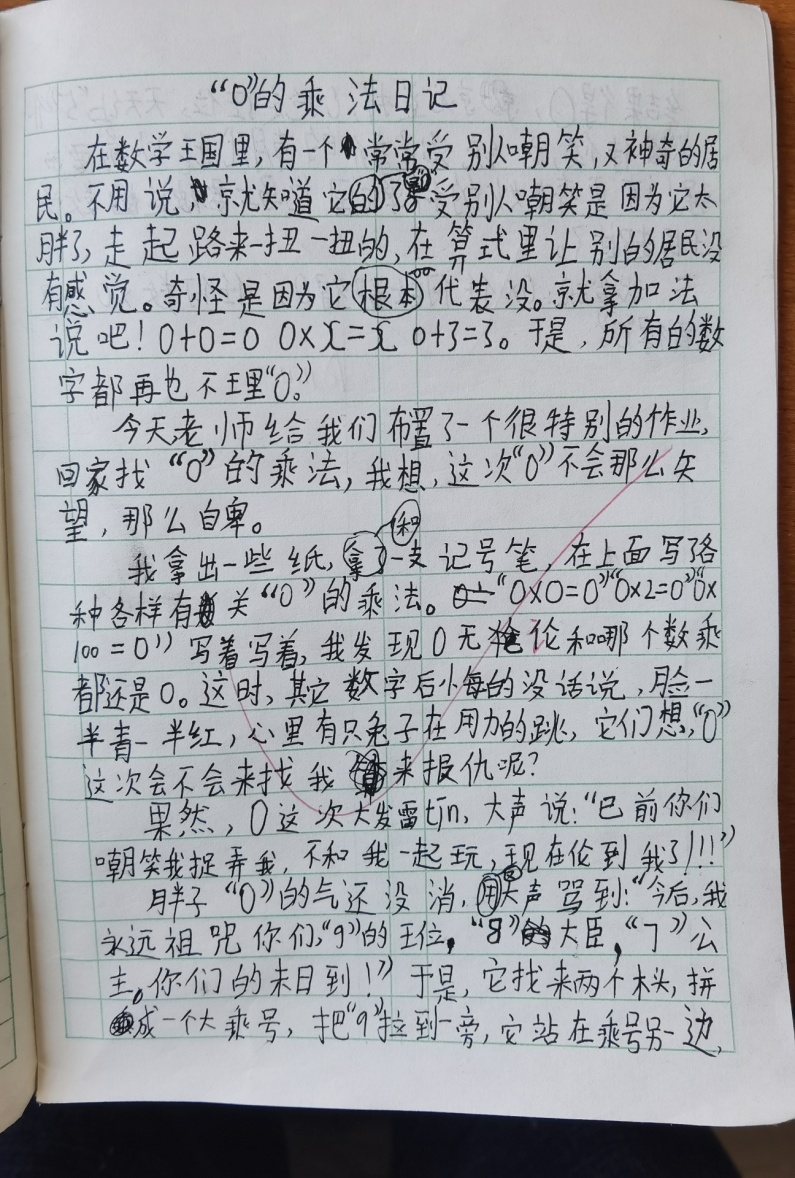 “0”的乘法日记
在数学王国里,有一个常常受别人嘲笑,又神奇的居
民。不用说,就知道它的了受别人嘲笑是因为它太
胖了,走起路来一扭一扭的,在算式里让别的居民没
有感觉。奇怪是因为它根本代表没。就拿加法
说吧!0+0=0 0×X=X 0+3=3。于是,所有的数
字都再也不理“0”。
今天老师给我们布置了一个很特别的作业,
回家找“0”的乘法,我想,这次“0”不会那么失
望,那么自卑。
和
我拿出一些纸,拿了一支记号笔,在上面写了各
种各样有关“0”的乘法。“0×0=0”“0×2=0”“0×
100=0”写着写着,我发现0无伦和哪个数乘
都还是0。这时,其它数字后悔的没话说,脸一
半青一半红,心里有只兔子在用力的跳,它们想,“0”
这次会不会来找我来报仇呢?
果然,0这次大发雷tín,大声说:“已前你们
嘲笑我捉弄我,不和我一起玩,现在伦到我了!!!”
胖子“0”的气还没消,用大声骂到:“今后,我
永远祖咒你们,“9”的王位,“8”大臣,“7”公
主。你们的末日到!”于是,它找来两个木头,拼
成一个大乘号,把“9”拉到一旁,它站在乘号另一边,